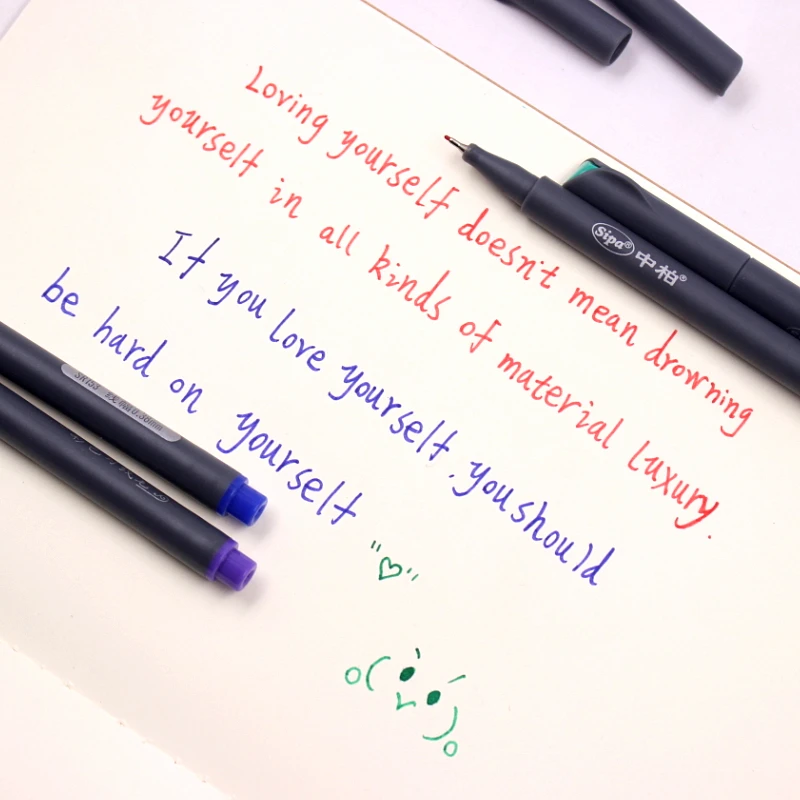 Loving yourself doesn't mean drowning
yourself in all kinds of material luxury.
If you love yourself, you should
be hard on yourself
Sipa® 中柏®
SK153 0.38mm